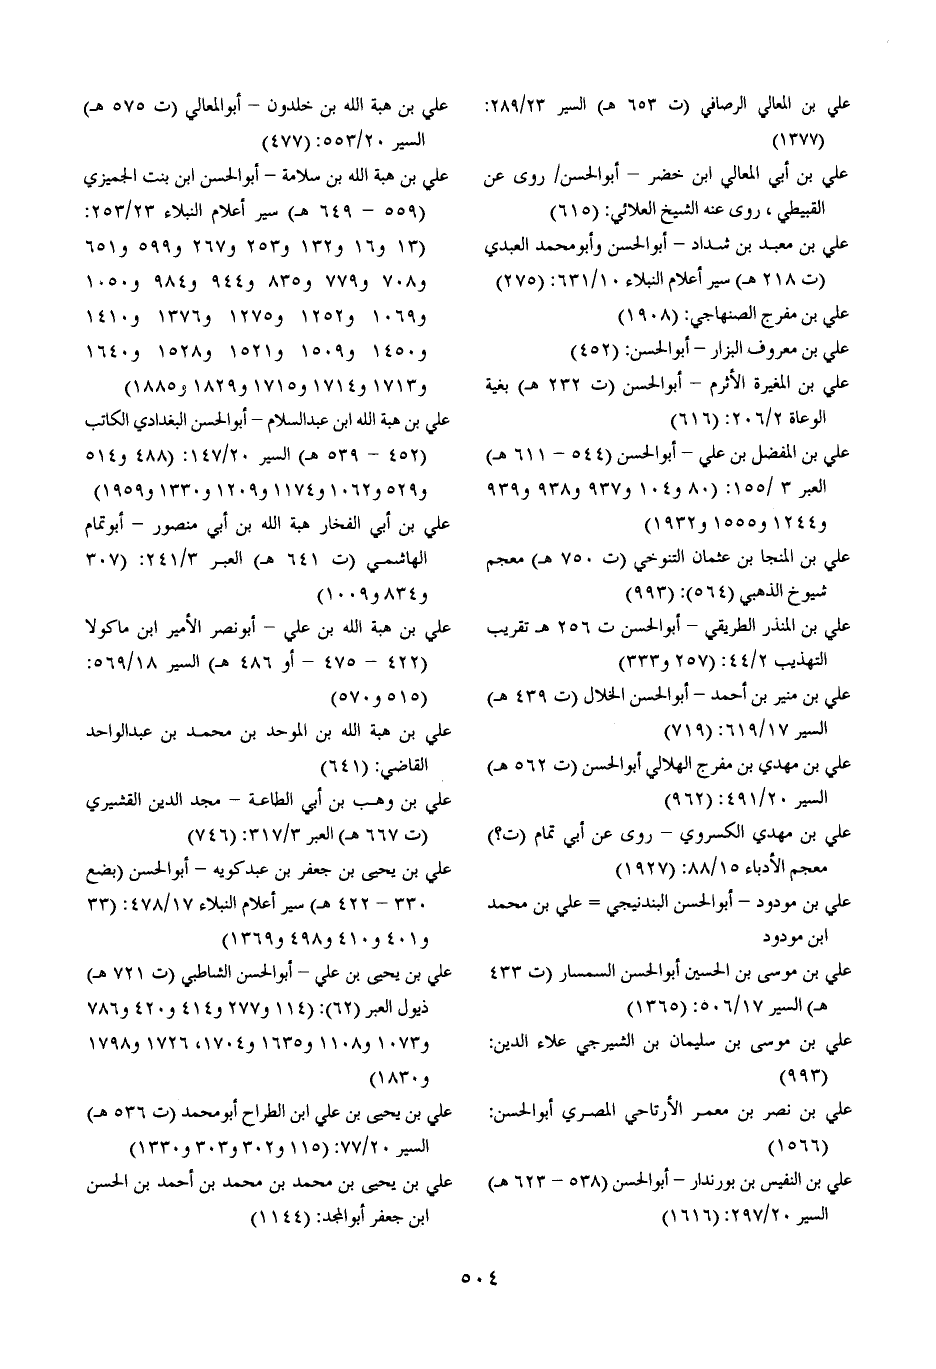 علي بن المعالي الرصافي (ت ٦٥٣ هـ) السير ٢٨٩/٢٣:
(١٣٧٧)
علي بن أبي المعالي ابن خضر – أبوالحسن/ روى عن
القبيطي ، روى عنه الشيخ العلائي: (٦١٥)
علي بن معبد بن شداد – أبوالحسن وأبومحمد العبدي
(ت ٢١٨ هـ) سير أعلام النبلاء ٦٣١/١٠: (٢٧٥)
علي بن مفرج الصنهاجي: (١٩٠٨)
علي بن معروف البزار – أبوالحسن: (٤٥٢)
علي بن المغيرة الأثرم – أبوالحسن (ت ٢٣٢ هـ) بغية
الوعاة ٢٠٦/٢: (٦١٦)
علي بن المفضل بن علي – أبوالحسن (٥٤٤ – ٦١١ هـ)
العبر ٣ /١٥٥: (٨٠ و١٠٤ و٩٣٧ و٩٣٨ و٩٣٩
و١٢٤٤ و١٥٥٥ و١٩٣٢)
علي بن المنجا بن عثمان التنوخي (ت ٧٥٠ هـ) معجم
شيوخ الذهبي (٥٦٤): (٩٩٣)
علي بن المنذر الطريقي – أبوالحسن ت ٢٥٦ هـ تقريب
التهذيب ٤٤/٢: (٢٥٧ و٣٣٣)
علي بن منير بن أحمد – أبوالحسن الخلال (ت ٤٣٩ هـ)
السير ٦١٩/١٧: (٧١٩)
علي بن مهدي بن مفرج الهلالي أبوالحسن (ت ٥٦٢ هـ)
السير ٤٩١/٢٠: (٩٦٢)
علي بن مهدي الكسروي – روى عن أبي تمام (ت؟)
معجم الأدباء ٨٨/١٥: (١٩٢٧)
علي بن مودود – أبوالحسن البندنيجي = علي بن محمد
ابن مودود
علي بن موسى بن الحسين أبوالحسن السمسار (ت ٤٣٣
هـ) السير ٥٠٦/١٧: (١٣٦٥)
علي بن موسى بن سليمان بن الشيرجي علاء الدين:
(٩٩٣)
علي بن نصر بن معمر الأرتاحي المصري أبوالحسن:
(١٥٦٦)
علي بن النفيس بن بورندار – أبوالحسن (٥٣٨ – ٦٢٣ هـ)
السير ٢٩٧/٢٠: (١٦١٦)
علي بن هبة الله بن خلدون – أبوالمعالي (ت ٥٧٥ هـ)
السير ٥٥٣/٢٠: (٤٧٧)
علي بن هبة الله بن سلامة – أبوالحسن ابن بنت الجميزي
(٥٥٩ – ٦٤٩ هـ) سير أعلام النبلاء ٢٥٣/٢٣:
(١٣ و١٦ و١٣٢ و٢٥٣ و٢٦٧ و٥٩٩ و٦٥١
و٧٠٨ و٧٧٩ و٨٣٥ و٩٤٤ و٩٨٤ و١٠٥٠
و١٠٦٩ و١٢٥٢ و١٢٧٥ و١٣٧٦ و١٤١٠
و١٤٥٠ و١٥٠٩ و١٥٢١ و١٥٢٨ و١٦٤٠
و١٧١٣ و١٧١٤ و١٧١٥ و١٨٢٩ و١٨٨٥)
علي بن هبة الله ابن عبدالسلام – أبوالحسن البغدادي الكاتب
(٤٥٢ – ٥٣٩ هـ) السير ١٤٧/٢٠: (٤٨٨ و٥١٤
و٥٢٩ و١٠٦٢ و١١٧٤ و١٢٠٩ و١٣٣٠ و١٩٥٩)
علي بن أبي الفخار هبة الله بن أبي منصور – أبوتمام
الهاشمي (ت ٦٤١ هـ) العبر ٢٤١/٣: (٣٠٧
و٨٣٤ و١٠٠٩)
علي بن هبة الله بن علي – أبونصر الأمير ابن ماكولا
(٤٢٢ – ٤٧٥ – أو ٤٨٦ هـ) السير ٥٦٩/١٨:
(٥١٥ و٥٧٠)
علي بن هبة الله بن الموحد بن محمد بن عبدالواحد
القاضي: (٦٤١)
علي بن وهب بن أبي الطاعة – مجد الدين القشيري
(ت ٦٦٧ هـ) العبر ٣١٧/٣: (٧٤٦)
علي بن يحيى بن جعفر بن عبدكويه – أبوالحسن (بضع
٣٣٠ – ٤٢٢ هـ) سير أعلام النبلاء ٤٧٨/١٧: (٣٣
و٤٠١ و٤١٠ و٤٩٨ و١٣٦٩)
علي بن يحيى بن علي – أبوالحسن الشاطبي (ت ٧٢١ هـ)
ذيول العبر (٦٢): (١١٤ و٢٧٧ و٤١٤ و٤٢٠ و٧٨٦
و١٠٧٣ و١١٠٨ و١٦٣٥ و١٧٠٤، ١٧٢٦ و١٧٩٨
و١٨٣٠)
علي بن يحيى بن علي ابن الطراح أبومحمد (ت ٥٣٦ هـ)
السير ٧٧/٢٠: (١١٥ و٣٠٢ و٣٠٣ و١٣٣٠)
علي بن يحيى بن محمد بن محمد بن أحمد بن الحسن
ابن جعفر أبوالمجد: (١١٤٤)
٥٠٤